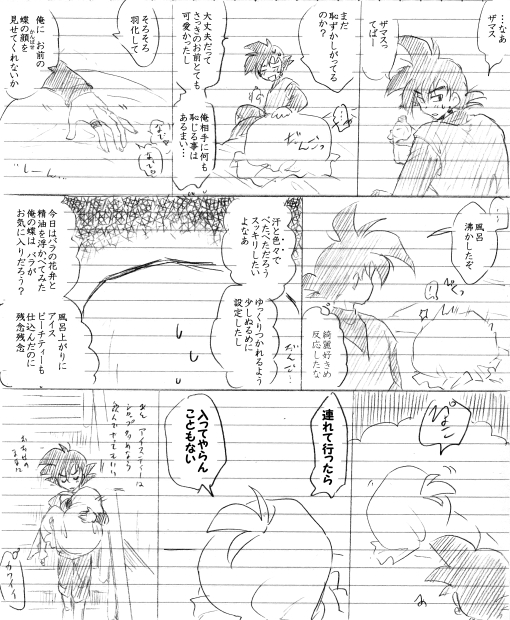 …なあ
ザマス
ザマスっ
てばー
まだ
恥ずかしがってる
のか?
だんっ
大丈夫だって
さっきのお前とても
可愛かったし
俺相手に何も
恥じる事は
あるまい…
そろそろ
羽化して
俺に お前の
蝶の顔を
かんばせ
見せてくれないか
なで
なで
しーん…
風呂
沸かしたぞ
綺麗好きめ
反応したな
汗と色々で
べたべただろう
スッキリしたい
よなあ
ゆっくりつかれるよう
少しぬるめに
設定したし
今日はバラの花弁と
精油を浮かべてみた
俺の蝶は バラが
お気に入りだろう?
風呂上がりに
アイス
ピーチティーも
仕込んだのに
残念残念
ぴょこ
連れて行ったら
入ってやらん
こともない
カワイイ